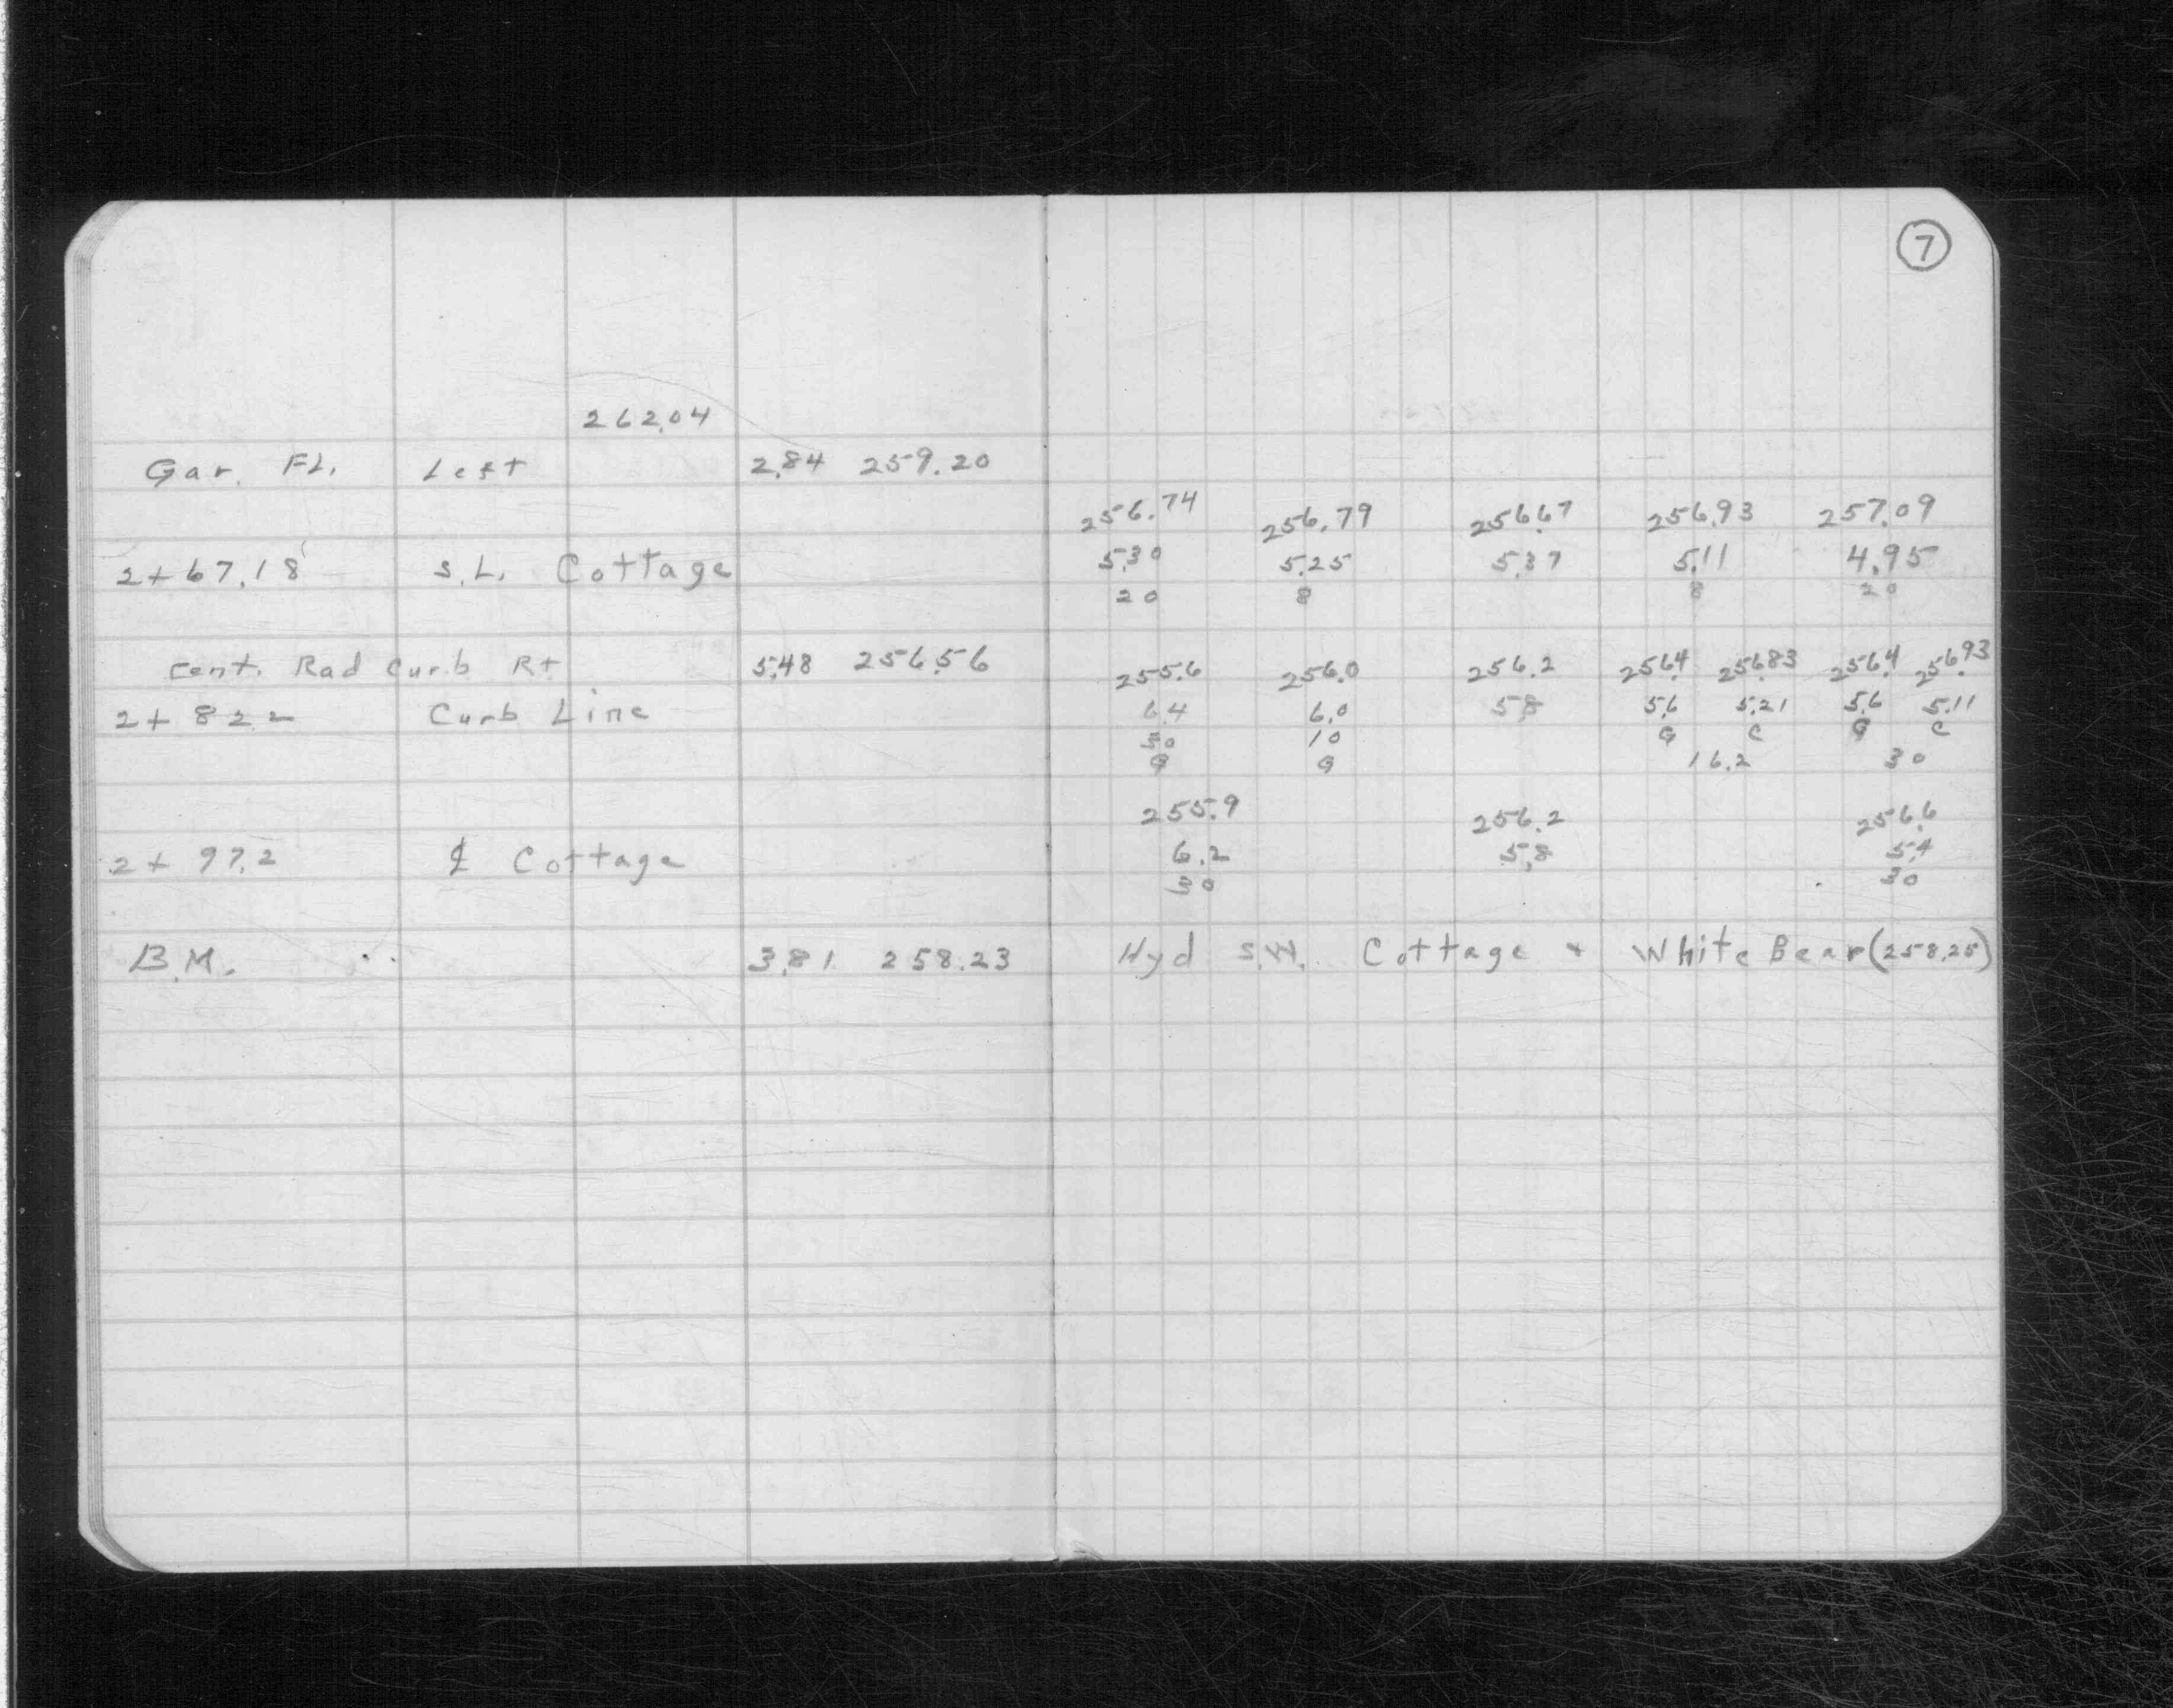 7
262.04
Gar. FL. Left 2.84 259.20
256.74 256.79 256.67 256.93 257.09
2+67.18 S.L. Cottage 5.30 5.25 5.37 5.11 4.95
20 8 8 20
Cent. Rad Curb Rt 5.48 256.56 255.6 256.0 256.2 256.4 256.83 256.4 256.93
2+82.2 Curb Line 6.4 6.0 5.8 5.6 5.21 5.6 5.11
30 10 G C G C
G G 16.2 30
255.9 256.2 256.6
2+97.2 ℄ Cottage 6.2 5.8 5.4
30 30
B.M. .. 3.81 258.23 Hyd S.W. Cottage + White Bear (258.25)